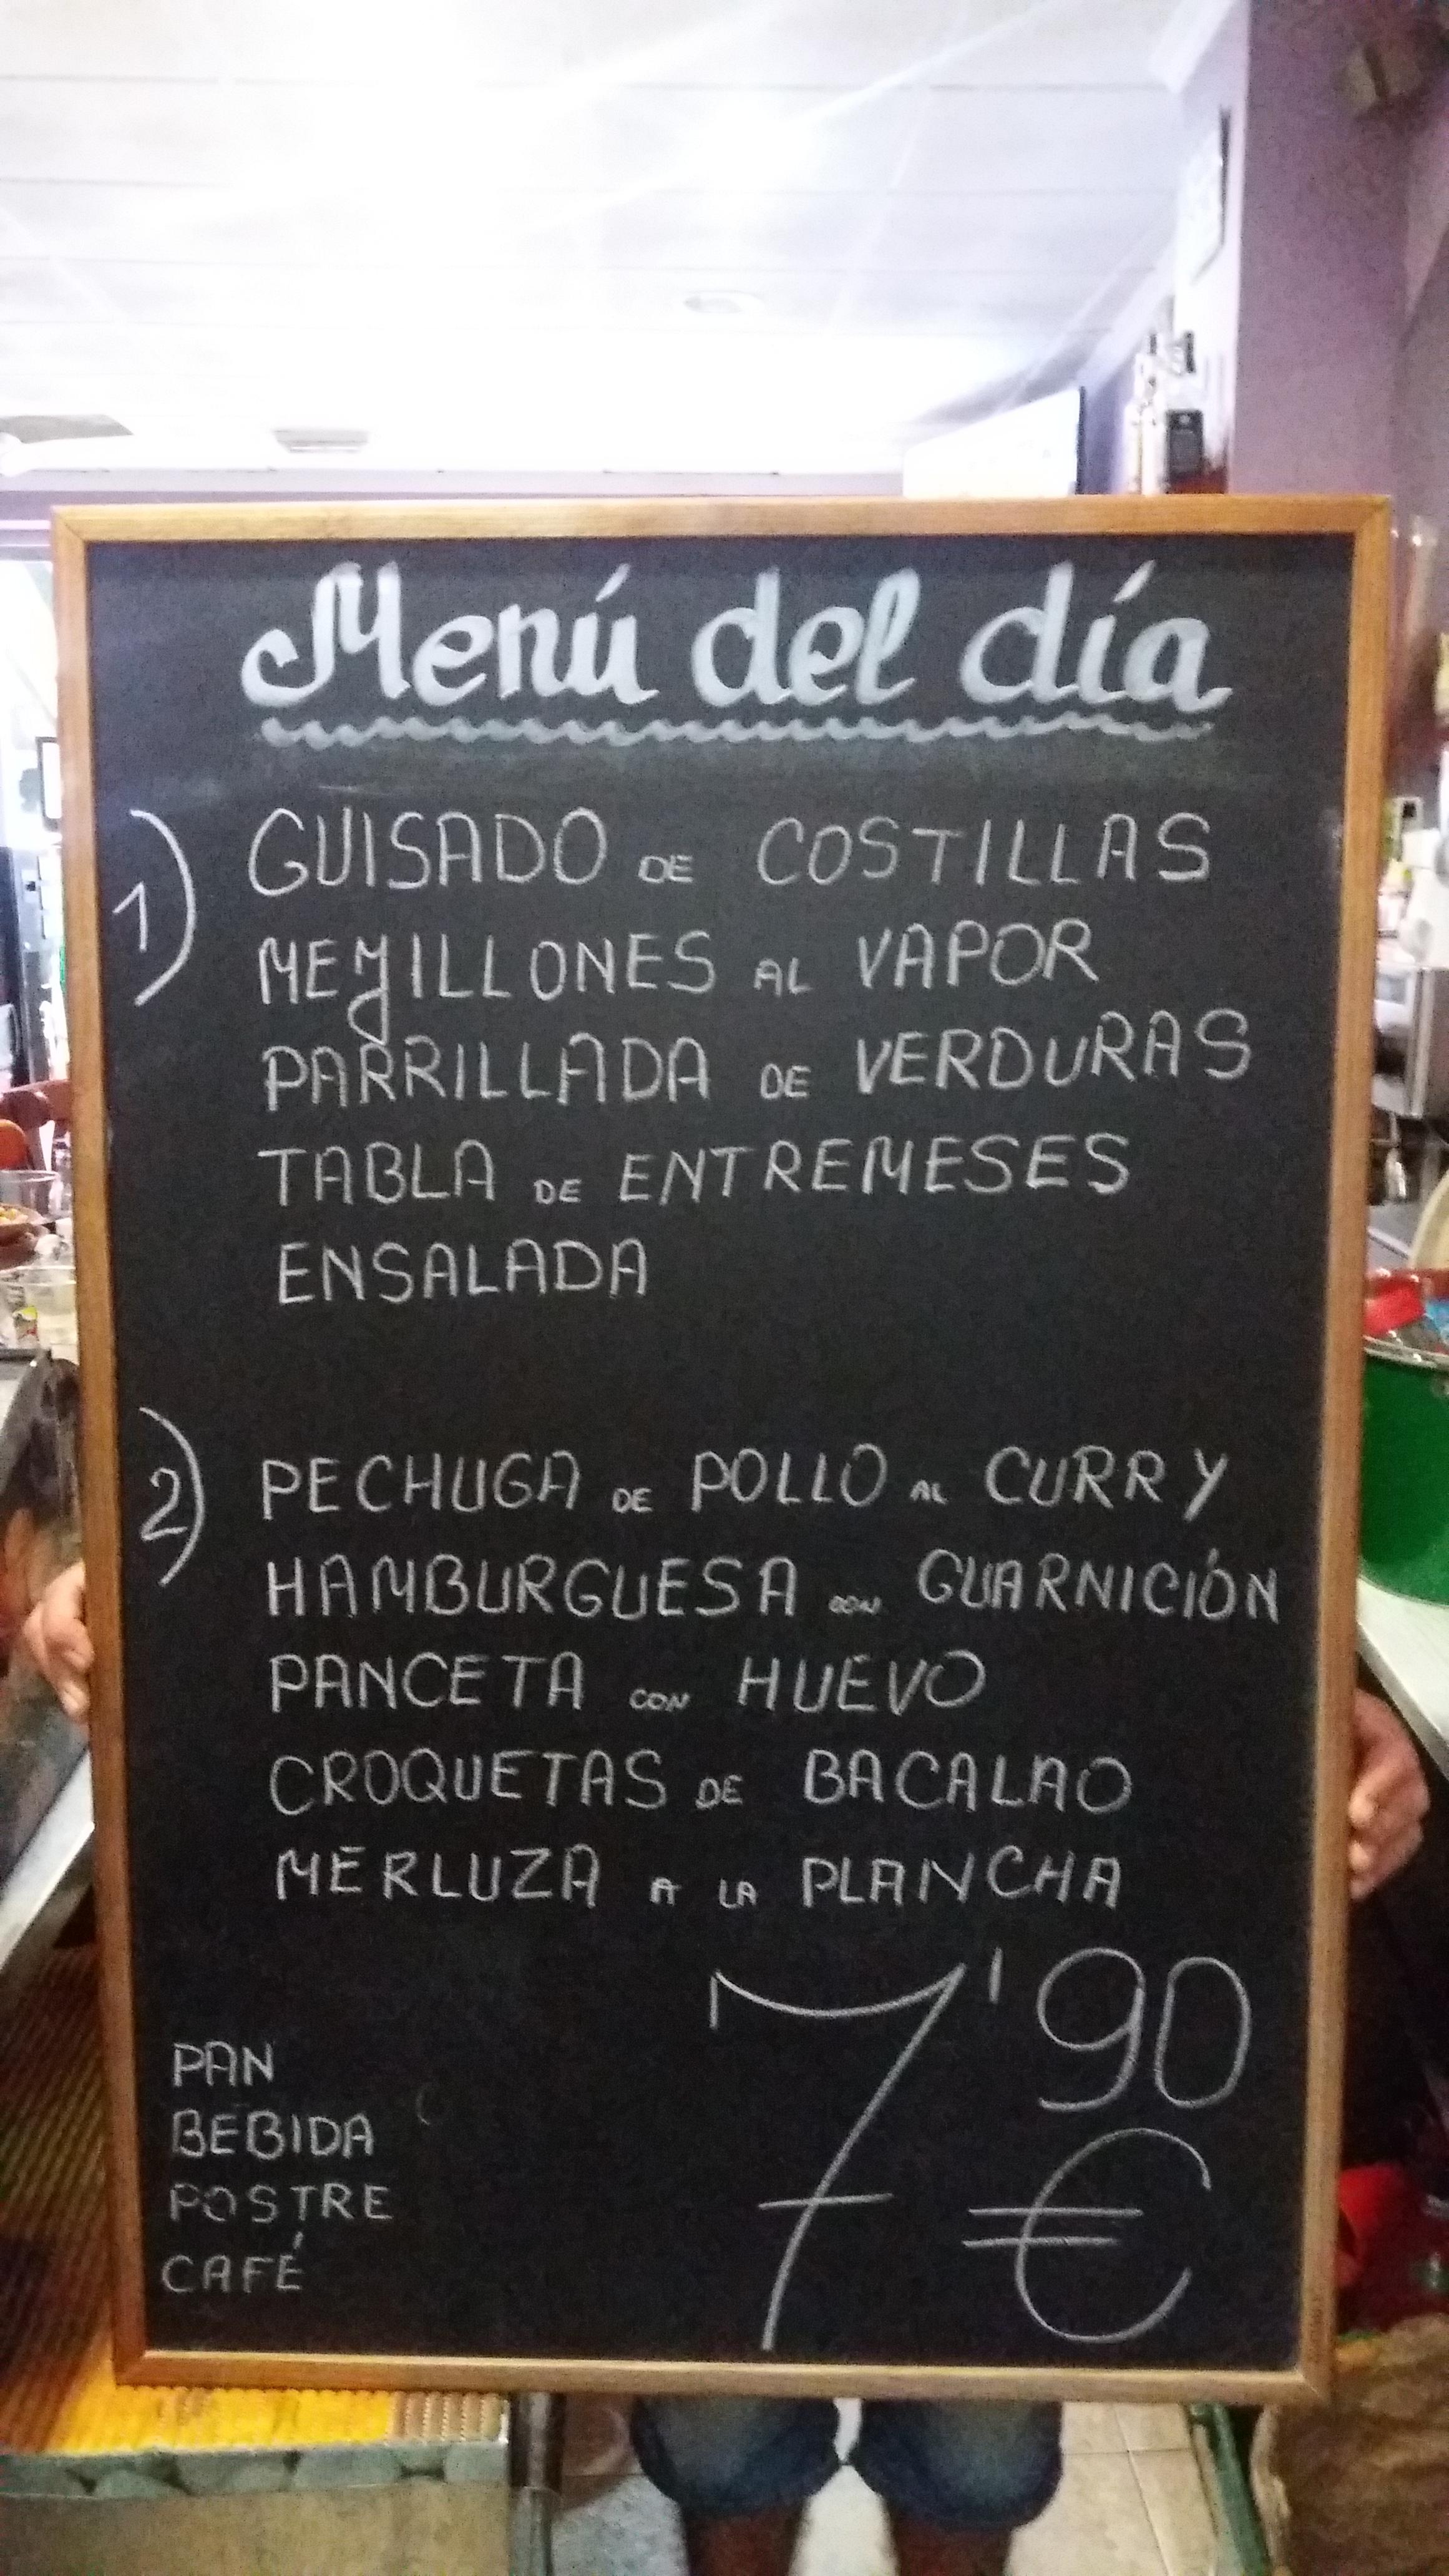 Menú del día
1) GUISADO DE COSTILLAS
MEJILLONES AL VAPOR
PARRILLADA DE VERDURAS
TABLA DE ENTREMESES
ENSALADA
2) PECHUGA DE POLLO AL CURRY
HAMBURGUESA CON GUARNICIÓN
PANCETA CON HUEVO
CROQUETAS DE BACALAO
MERLUZA A LA PLANCHA
7'90
€
PAN
BEBIDA
POSTRE
CAFÉ